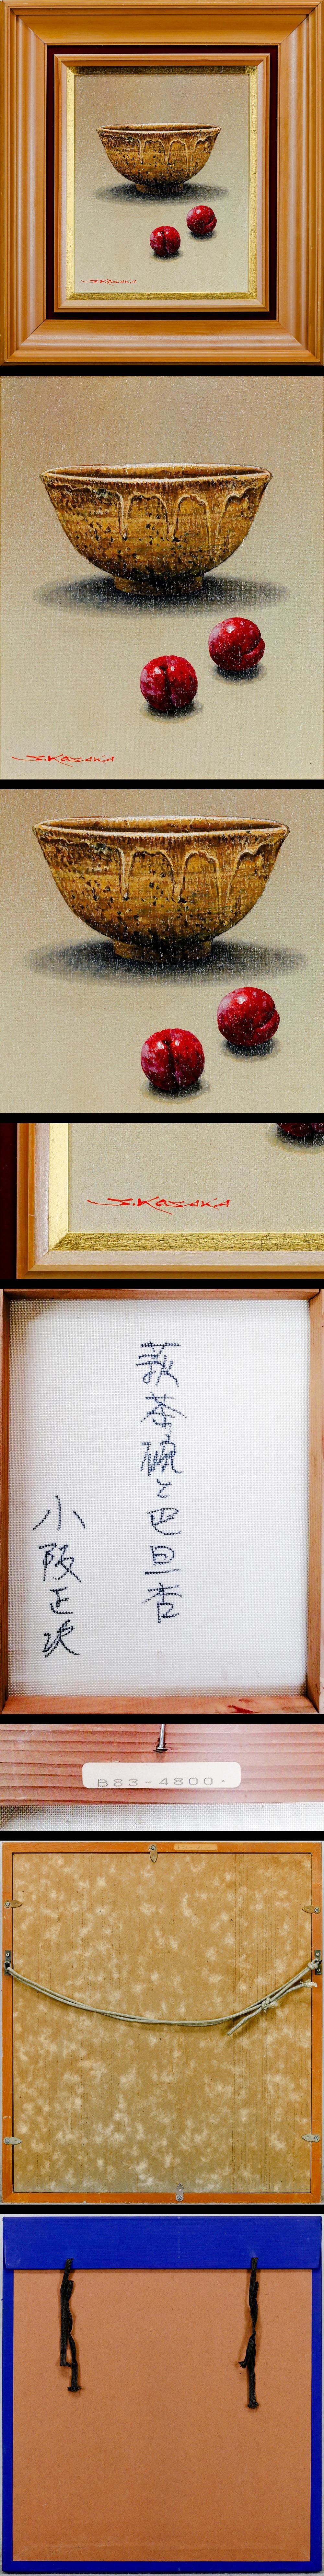 S.KOSAKA
S.KOSAKA
S.KOSAKA
萩茶碗と巴旦杏
小阪正次
B83-4800-